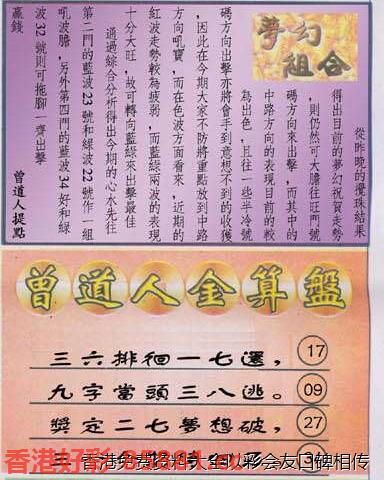 夢幻
組合
從昨晚的攪珠結果
得出目前的夢幻祝賀走勢
，則仍然可大膽往旺門號
碼方向來出擊，而其中的
中路方向的表現目前的較
為出色，且往一些半冷號
碼方向出擊亦將會手到意想不到的收穫
，因此在今期大家不防將重點放到中路
方向吼實，而在色波方面看來，近期的
紅波走勢較為疲弱，而藍綠兩波的表現
十分大旺，故可轉向藍綠來出擊最佳
通過綜合分析得出今期的心水先往
第二門的藍波23號和綠波22號作一組
吼波膽，另外第四門的藍波34好和綠
波32號則可拖腳一齊出擊
贏錢
曾道人提點
曾道人金算盤
三六排徊一七選， 17
九字當頭三八逃。 09
獎定二七夢想破， 27
香港好彩
香港免费资料大全以彩会友口碑相传